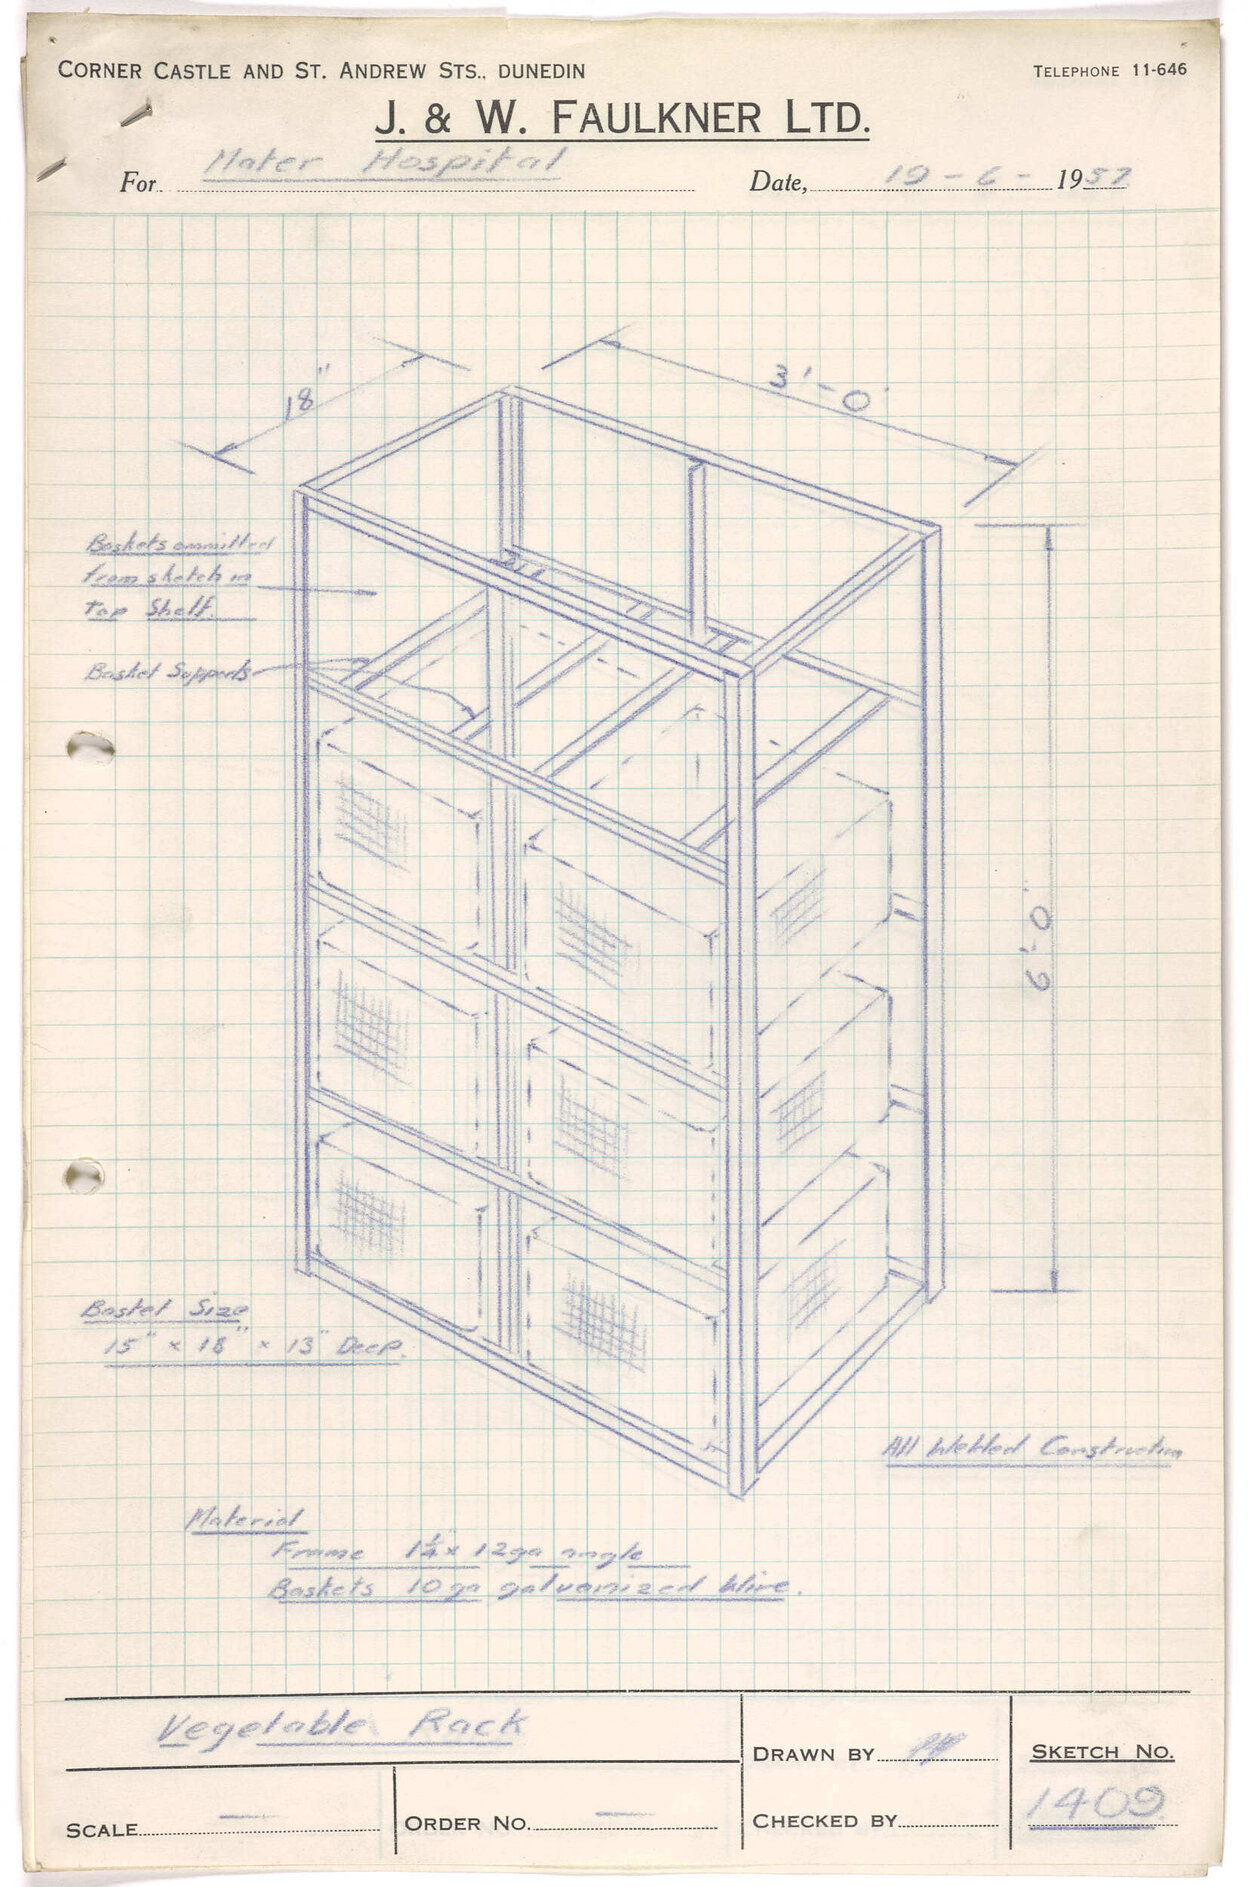 CORNER CASTLE AND ST. ANDREW STS., DUNEDIN
TELEPHONE 11-646
J. & W. FAULKNER LTD.
For Mater Hospital
Date, 19 - 6 - 1957
18"
3'-0"
Baskets ommitted
from sketch in
top Shelf.
Basket Supports
6'-0"
Basket Size
15" x 18" x 13" Deep.
All Welded Construction
Material
Frame 1¼" x 12ga angle
Baskets 10 ga galvanized Wire.
Vegetable Rack
DRAWN BY
SKETCH NO.
1409
SCALE —
ORDER NO. —
CHECKED BY